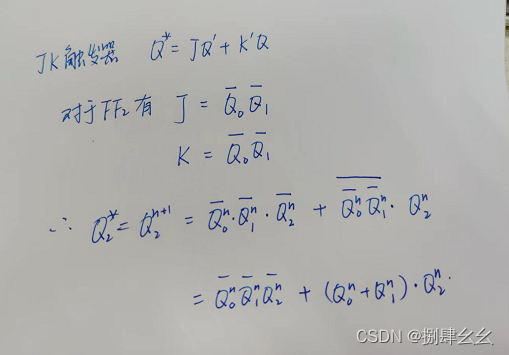 JK触发器 Q* = JQ' + K'Q
对于FF₂有 J = Q̅₀ Q̅₁
K = Q̅₀ Q̅₁
∴ Q₂* = Q₂ⁿ⁺¹ = Q̅₀ⁿ·Q̅₁ⁿ·Q̅₂ⁿ + \overline{Q̅₀ⁿ Q̅₁ⁿ}· Q₂ⁿ
= Q̅₀ⁿ Q̅₁ⁿ Q̅₂ⁿ + (Q₀ⁿ+Q₁ⁿ)·Q₂ⁿ.
CSDN @捌肆幺幺